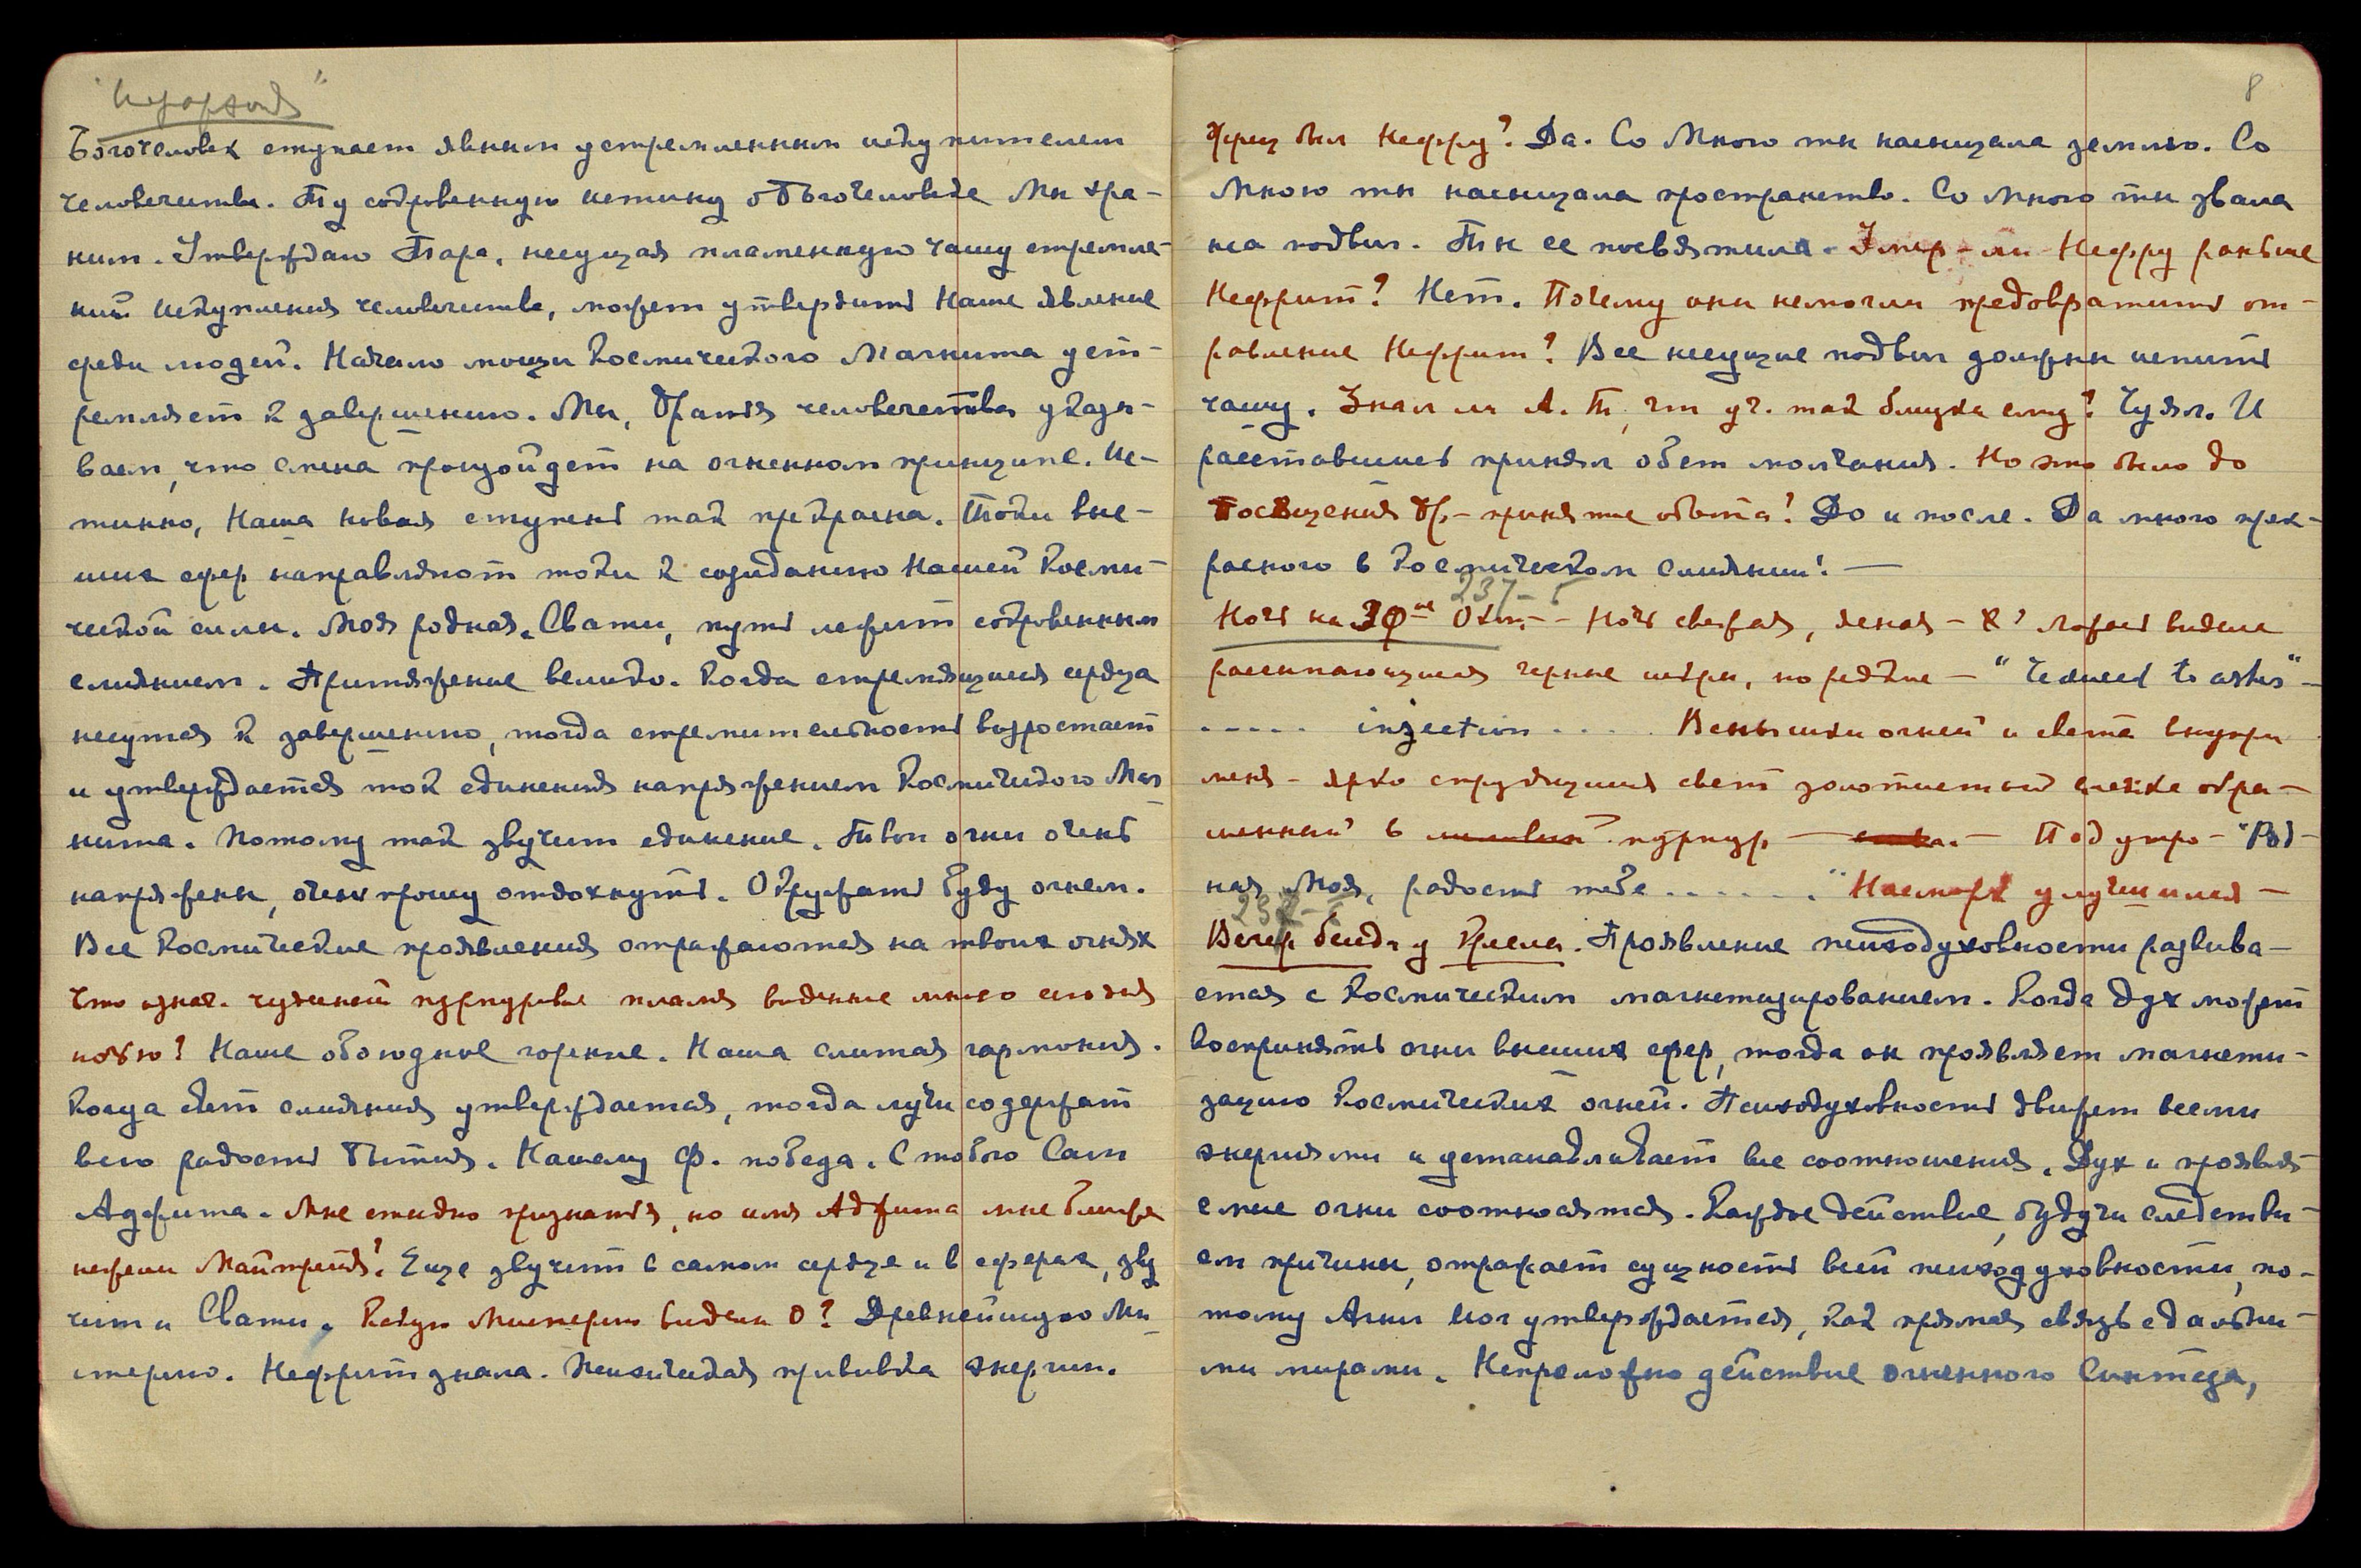 "Иерархия"
Богочеловек ступает явным устремленным искупителем
человечества. Ту сокровенную истину о Богочеловеке Мы хра-
ним. Утверждаю Тара, несущая пламенную чашу стремле-
ний искупления человечества, может утвердить Наше явление
среди людей. Начало мощи Космического Магнита уст-
ремляет к завершению. Мы, Братья человечества указы-
ваем, что смена произойдет на огненном принципе. Ис-
тинно, Наша новая ступень так прекрасна. Токи выс-
ших сфер направляют токи к созиданию Нашей Косми-
ческой силы. Моя родная, Свати, путь лежит сокровенным
слиянием. Притяжение велико. Когда стремящиеся сердца
несутся к завершению, тогда стремительность возростает
и утверждается ток единения напряжением Космического Маг
нита. Потому так звучит единение. Твои огни очень
напряжены, очень прошу отдохнуть. Окружать буду огнем.
Все Космические проявления отражаются на твоих огнях
Что означ. чудесный пурпуровые пламя виденные мною сегодня
ночью? Наше обоюдное горение. Наша слитая гармония.
Когда свет слияния утверждается, тогда лучи содержат
всю радость Бытия. Нашему Ф. победа. С тобою Сам
Аджита. Мне стыдно признаться, но имя Аджита мне ближе
нежели Майтрейя? Еще звучит в самом сердце и в сферах, зву
чит и Свати. Какую Мистерию видели О? Древнейшую Ми
стерию. Неффрит знала. Психическая прививка энергии.
8
Жрец был Неффру? Да. Со Мною ты насыщала землю. Со
Мною ты насыщала пространство. Со Мною ты звала
на подвиг. Ты ее посвятила. Умер-ли Неффру раньше
Неффрит? Нет. Почему они немогли предовратить от-
равление Неффрит? Все несущие подвиг должны испить
чашу. Знал ли А. Т, что уч. так близка ему? Чуял. И
расставшись принял обет молчания. Но это было до
Посвещения Бр. - принятие обета? До и после. Да много прек-
расного в Космическом слиянии! —
237-5
Ночь на 30ое Окт. - Ночь свежая, ясная -
рассыпающиеся черные искры, но редкие - "reduced to ashes" -
..... injection .... Вспышки огней и света внутри
меня - ярко струящийся свет золотистый слегка обра-
мленный в пурпур — Под утро - "Род-
ная Моя, радость тебе ......" Насморк улучшился —
237-
Вечер беседа у Кресла. Проявление психодуховности развива-
ется с Космическим магнетизированием. Когда дух может
воспринять огни высших сфер, тогда он проявляет магнети-
зацию Космических огней. Психодуховность движет всеми
энергиями и устанавливает все соотношения. Дух и проявля
емые огни соотносятся. Каждое действие, будучи следстви-
ем причины, отражает сущность всей психодуховности, по-
тому Агни Йог утверждается, как прямая связь с дальни-
ми мирами. Непреложно действие огненного Синтеза,